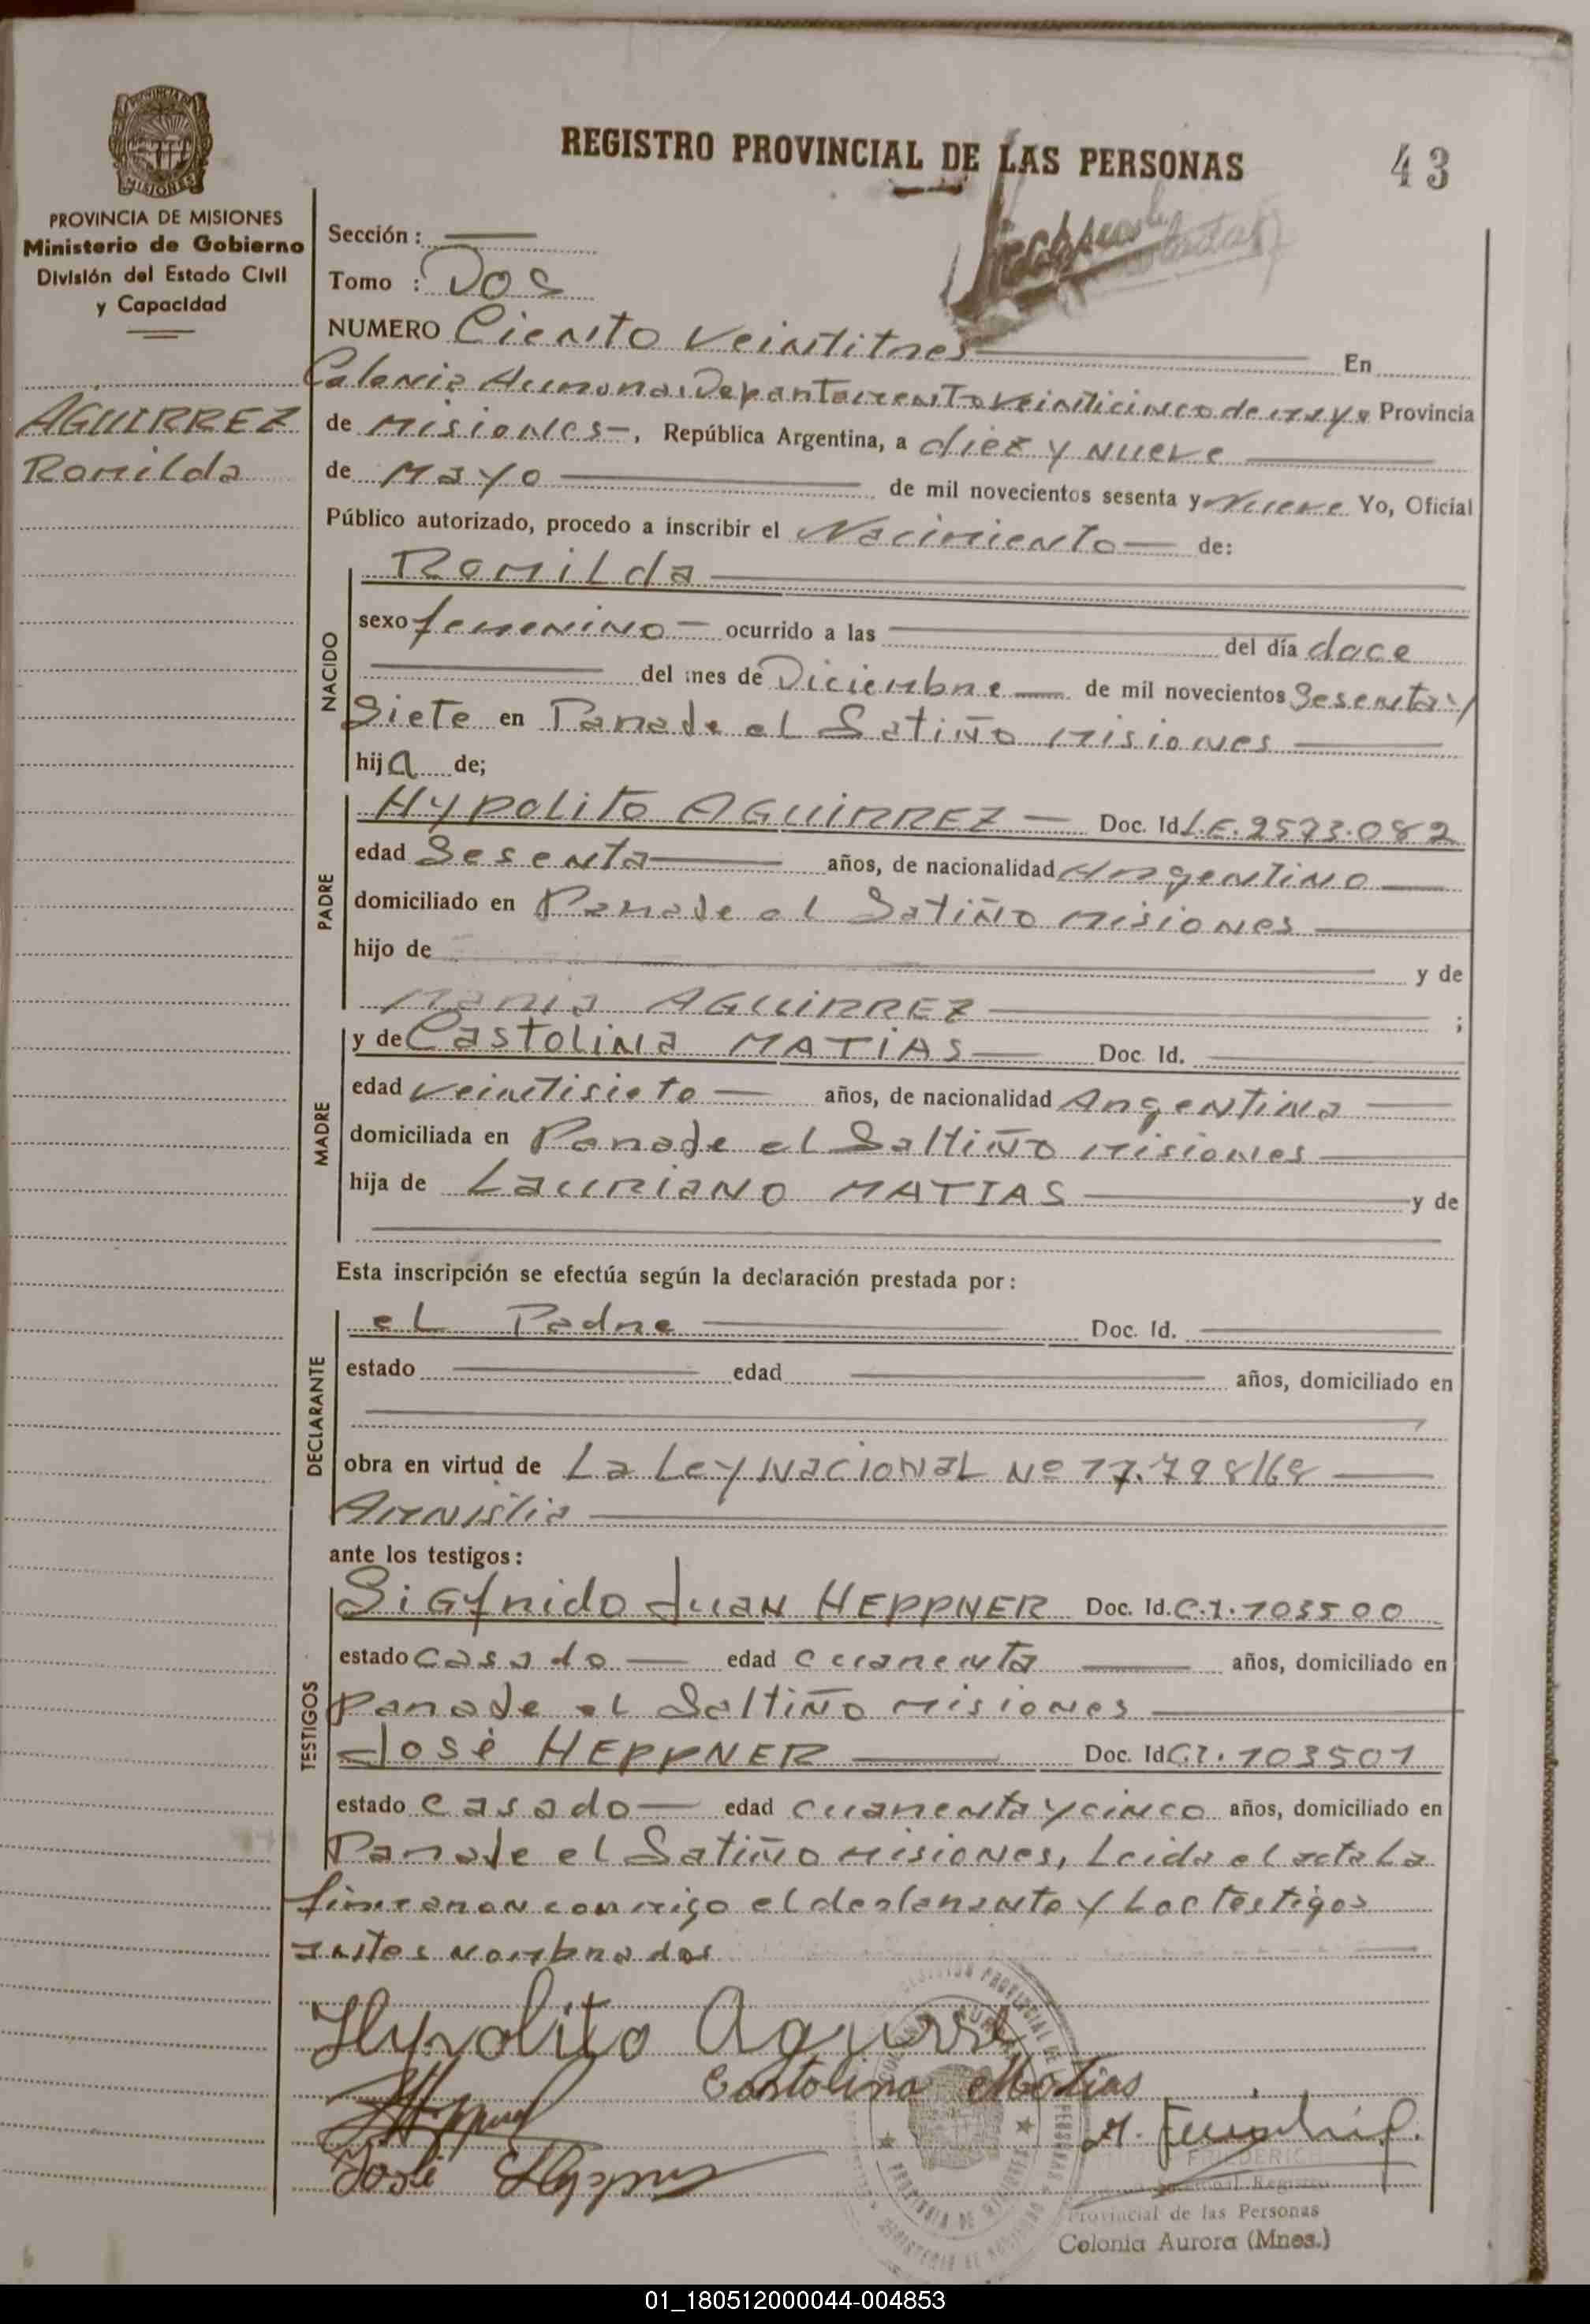 REGISTRO PROVINCIAL DE LAS PERSONAS
43
PROVINCIA DE MISIONES
Ministerio de Gobierno
División del Estado Civil
y Capacidad
AGUIRREZ
Romilda
Sección :
Tomo : Dos
NUMERO Ciento Veintitres En
Colonia Aurora, Departamento Veinticinco de mayo Provincia
de Misiones, República Argentina, a diez y nueve
de Mayo de mil novecientos sesenta y nueve Yo, Oficial
Público autorizado, procedo a inscribir el Nacimiento de:
NACIDO
Romilda
sexo femenino ocurrido a las del día doce
del mes de Diciembre de mil novecientos Sesenta y
Siete en Parade el Satiño Misiones
hija de;
PADRE
Hypolito AGUIRREZ Doc. Id L.E. 2573.082
edad Sesenta años, de nacionalidad Argentino
domiciliado en Parade el Satiño Misiones
hijo de y de
Maria AGUIRREZ ;
MADRE
y de Castolina MATIAS Doc. Id.
edad veintisiete años, de nacionalidad Argentina
domiciliada en Parade el Saltiño Misiones
hija de Lauriano MATIAS y de
Esta inscripción se efectúa según la declaración prestada por:
DECLARANTE
el Padre Doc. Id.
estado edad años, domiciliado en
obra en virtud de La Ley Nacional Nº 17.798/68
Amnistia
ante los testigos:
TESTIGOS
Sigfrido Juan HEPPNER Doc. Id. C.I. 103500
estado casado edad cuarenta años, domiciliado en
Parade el Saltiño Misiones
José HEPPNER Doc. Id C.I. 103501
estado casado edad cuarenta y cinco años, domiciliado en
Parade el Satiño Misiones, Leida el acta La
firmaron conmigo el declarante y Los testigos
antes nombrados
Hypolito Aguirre
Castolina Matias
José Heppner
Provincial de las Personas
Colonia Aurora (Mnes.)
01_180512000044-004853